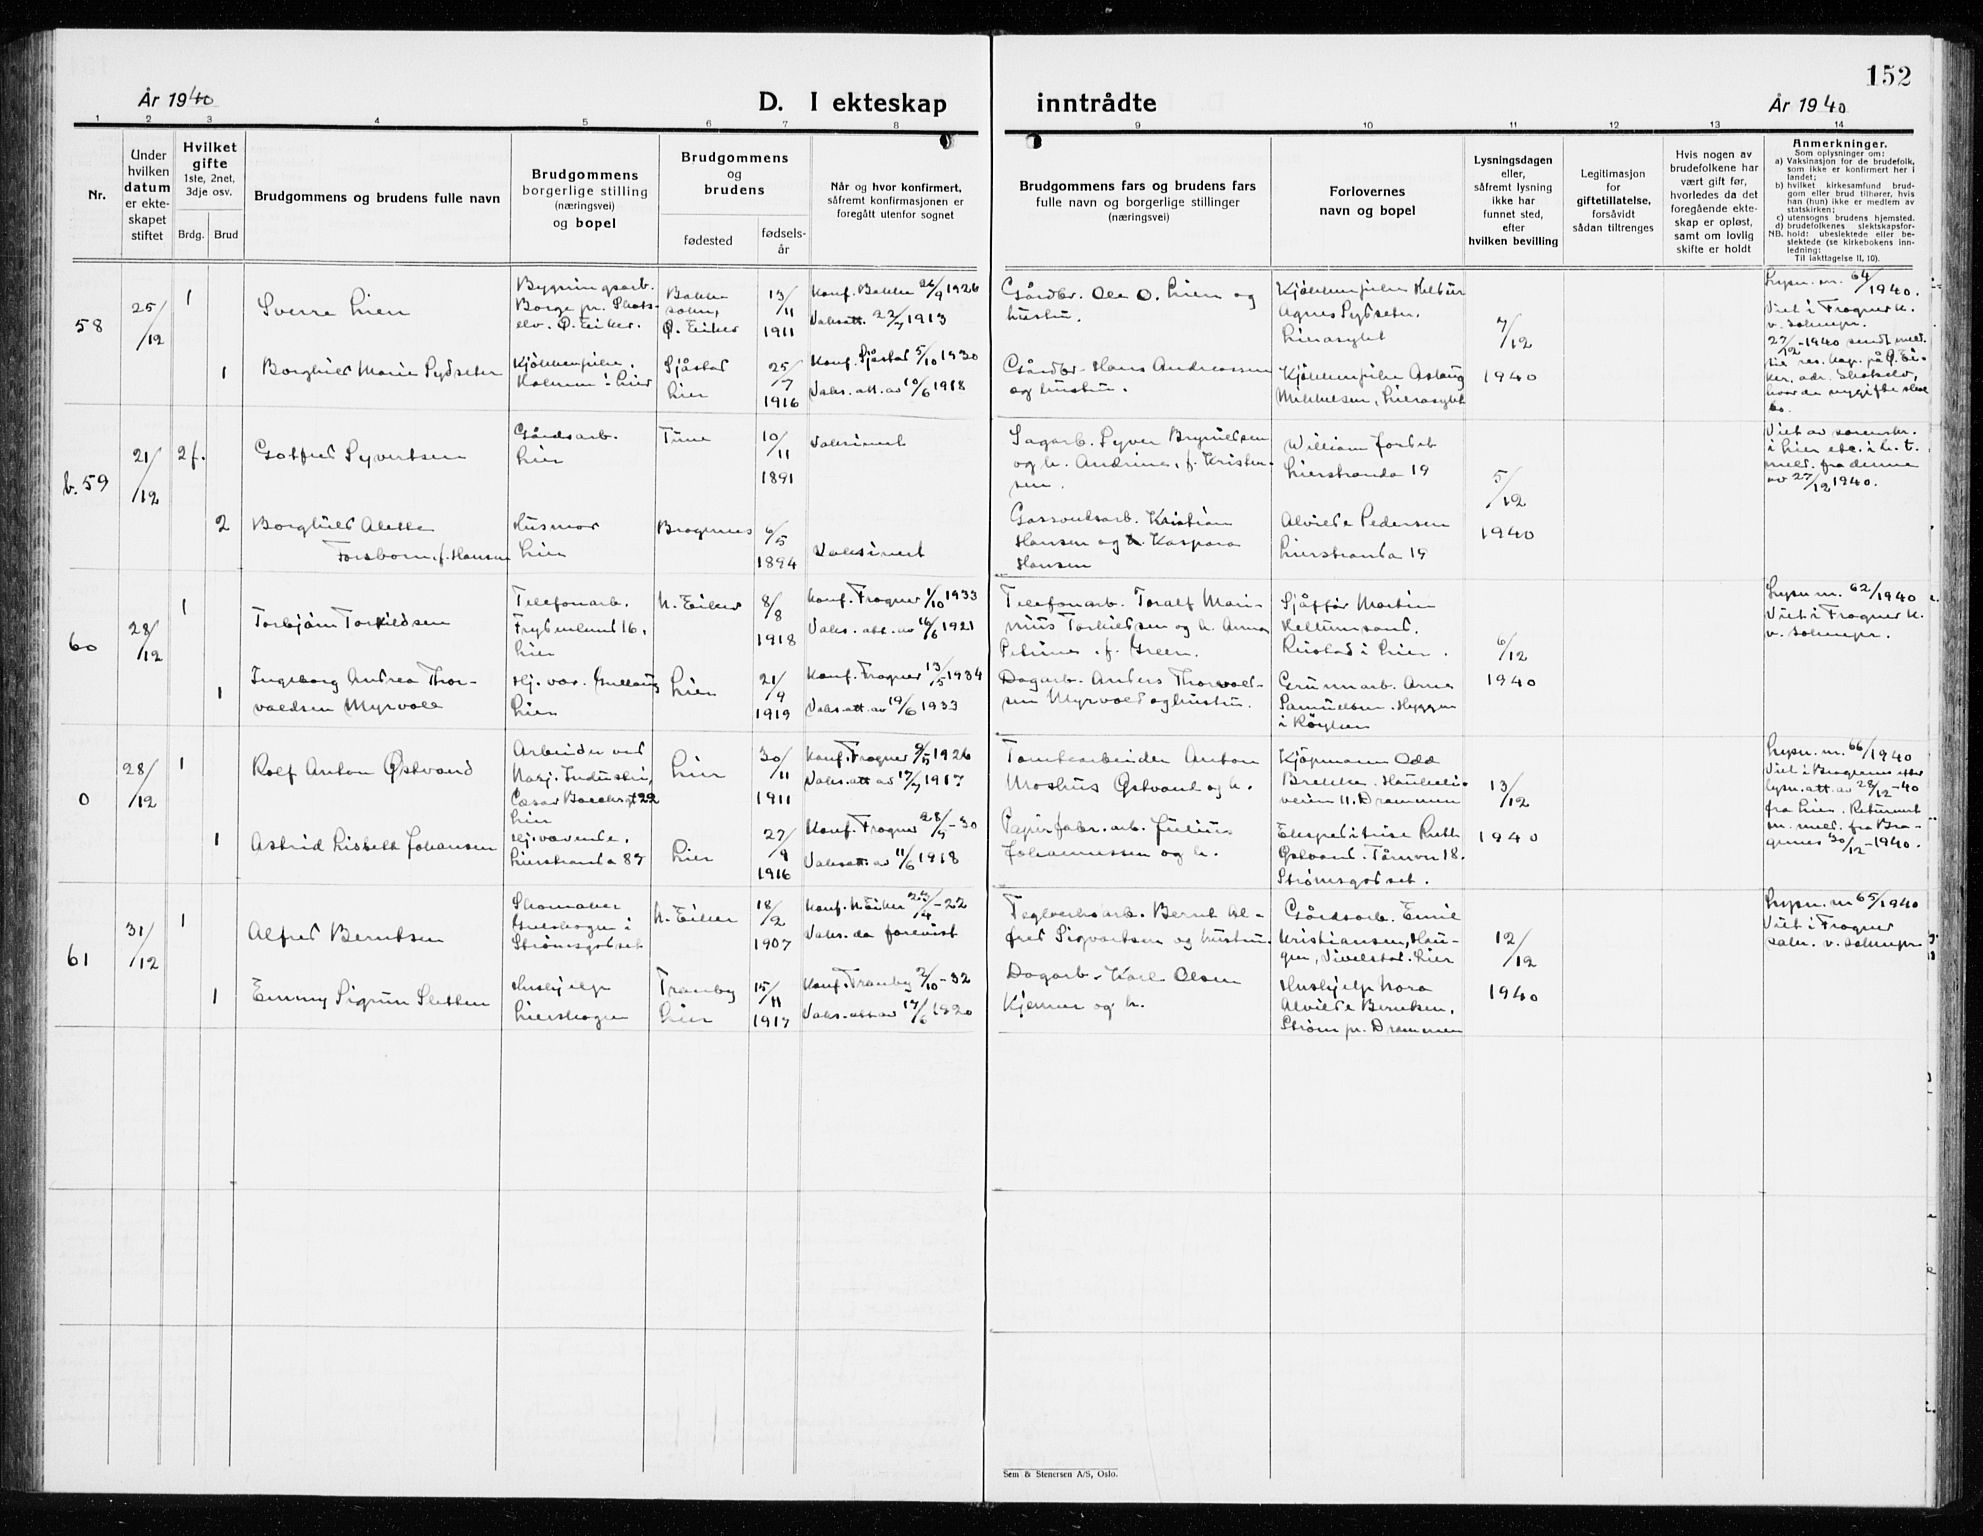 152
År 1940
D. I ekteskap inntrådte
År 1940
1 2 3 4 5 6 7 8 9 10 11 12 13 14
Nr.
Under
hvilken
datum
er ekte-
skapet
stiftet
Hvilket
gifte
1ste, 2net,
3dje osv.
Brdg. Brud
Brudgommens og brudens fulle navn
Brudgommens
borgerlige stilling
(næringsvei)
og bopel
Brudgommens
og
brudens
fødested
fødsels-
år
Når og hvor konfirmert,
såfremt konfirmasjonen er
foregått utenfor sognet
Brudgommens fars og brudens fars
fulle navn og borgerlige stillinger
(næringsvei)
Forlovernes
navn og bopel
Lysningsdagen
eller,
såfremt lysning
ikke har
funnet sted,
efter
hvilken bevilling
Legitimasjon
for
giftetillatelse,
forsåvidt
sådan tiltrenges
Hvis nogen av
brudefolkene har
vært gift før,
hvorledes da det
foregående ekte-
skap er opløst,
samt om lovlig
skifte er holdt
Anmerkninger.
Som oplysninger om:
a) Vaksinasjon for de brudefolk,
som ikke er konfirmert her i
landet;
b) hvilket kirkesamfund brud-
gom eller brud tilhører, hvis
han (hun) ikke er medlem av
statskirken;
c) utensogns brudens hjemsted.
d) brudefolkenes slektskapsfor-
NB. hold: ubeslektede eller be-
slektede (se kirkebokens inn-
ledning;
Til iakttagelse II, 10).
58
25/12
1
Sverre Lien
Bygningsarb.
Borge pr. Skots-
elv. Ø. Eiker.
Bakke
sokn,
Ø. Eiker
13/11
1911
Konf. Bakke 26/9 1926
Vaksatt. 22/7 1913
Gårdbr. Ole O. Lien og
hustru.
Kjøkkenpike
Agnes Sydseter.
Lierasylet
7/12
1940
Lysn. nr. 64/1940.
Viet i Frogner k.
v. solnepr.
27/12-1940 sendt meld.
til res. kap. på Ø. Ei-
ker, adr. Skotselv,
hvor de nygifte skal
bo.
1
Borghild Marie Sydseter
Kjøkkenpike,
i Lier
Sjåstad
Lier
25/7
1916
Konf. Sjåstad 5/10 1930
Vaks. att. av 10/6 1918
Gårdbr. Hans Andreassen
og hustru.
Kjøkkenpike Aslaug
Mikkelsen, Lierasylet
b. 59
21/12
2 f.
Gotfred Syvertsen
Gårdsarb.
Lier
Tune
10/11
1891
Vaksinert
Sagarb. Syver Brynildsen
og h. Andrine, f. Kristen-
sen.
William Forsb
Lierstranda 19
5/12
1940
Viet av sorenskr.
i Lier etc. i h. t.
meld. fra denne
av 27/12 1940.
2
Borghild Alette
Forsborn, f. Hansen
Husmor
Lier
Bragernes
6/5
1894
Vaksinert
Gassverksarb. Kristian
Hansen og h. Kaspara
Hansen
Alvilde Pedersen
Lierstranda 19
60
28/12
1
Torbjörn Torkildsen
Telefonarb.
Frydenlund 16,
Lier
N. Eiker
8/8
1918
Konf. Frogner 1/10 1933
Vaks. att. av 16/6 1921
Telefonarb. Toralf Mari-
nius Torkildsen og h. Anna
Petrine, f. Green.
Sjåffør Martin
Hellumsand.
Rustad i Lier.
6/12
1940
Lysn. nr. 62/1940
Viet i Frogner k.
v. solnepr.
1
Ingeborg Andrea Thor-
valdsen Myrvold
Hj. vær. Gullaug
Lier
Lier
21/9
1919
Konf. Frogner 13/5 1934
Vaks. att. av 19/6 1933
Dagarb. Anders Thorvald-
sen Myrvold og hustru.
Grunnarb. Arne
Samuelsen. Hyggen
i Røyken
0
28/12
1
Rolf Anton Østvand
Arbeider ved
Norj. Industri,
Cæsar Boecksgt 22
Lier
Lier
30/11
1911
Konf. Frogner 9/5-1926
Vaks. att av 17/7 1917
Tomtearbeider Anton
Moshus Østvand og h.
Kjøpmann Odd
Brekke. Haukeli-
veien 11. Drammen
13/12
1940
Lysn. nr. 66/1940
Viet i Bragernes etter
lysn. att. av 28/12-40
fra Lier. Returnert
m. meld. fra Bra-
gernes 30/12-1940.
1
Astrid Lisbeth Johansen
Hj. værende,
Lierstranda 87
Lier
27/9
1916
Konf. Frogner 28/9-30
Vaksatt. av 11/6 1918
Papirfabr. arb. Julius
Johannessen og h.
Ekspeditrise Ruth
Østvand. Tårnvn 18.
Strømsgodset.
61
31/12
1
Alfred Berntsen
Skomaker
Gulskogen i
Strømsgodset
N. Eiker
18/2
1907
Konf. N. Eiker 23/4-22
Vaks. da forevist
Teglverksarb. Bernt Al-
fred Sigvartsen og hustru.
Gårdsarb. Emil
Kristiansen, Hau-
gen, Sivelstad. Lier
12/12
1940
Lysn. nr 65/1940
Viet i Frogner
sakr. v. solnepr
1
Emmy Sigrun Sletten
Hushjelp
Lierskogen
Tranby
Lier
15/11
1917
Konf. Tranby 2/10-32
Vaks. att av 17/6 1920
Dagarb. Karl Olsen
Kjemer og h.
Hushjelp Nora
Alvilde Berntsen,
Strøm pr. Drammen
Sem & Stenersen A/S, Oslo.